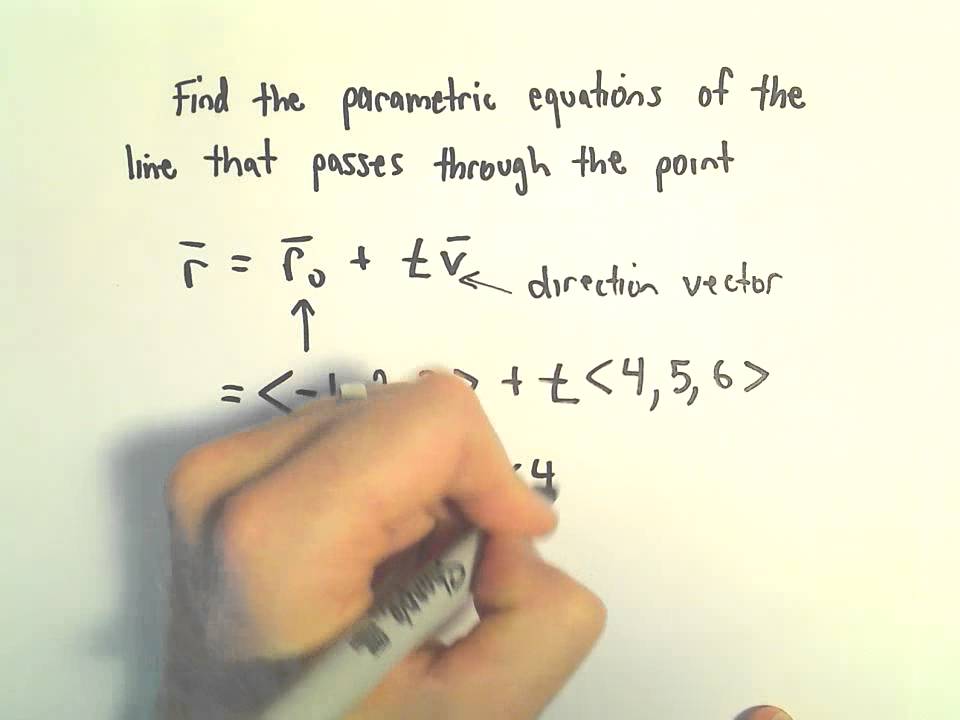 Find the parametric equations of the
line that passes through the point
r̄ = r̄₀ + t v̄ ← direction vector
↑
= <-1, + t <4, 5, 6>
4